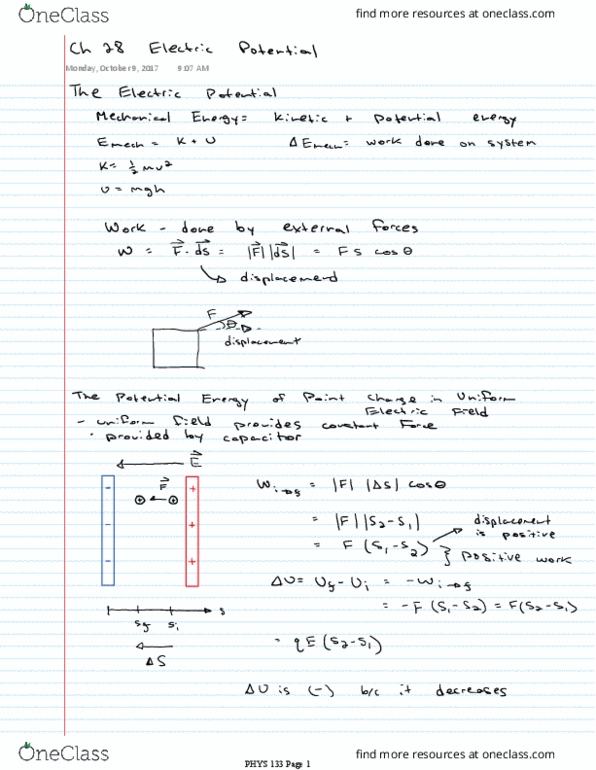 OneClass
find more resources at oneclass.com
Ch 28 Electric Potential
Monday, October 9, 2017 9:07 AM
The Electric Potential
Mechanical Energy = kinetic + potential energy
Emech = K + U ΔEmech = work done on system
K = ½ mv²
U = mgh
Work - done by external forces
W = F⃗ · ds⃗ = |F⃗| |ds⃗| = F s cos θ
↳ displacement
F
θ
displacement
The Potential Energy of Point Charge in Uniform
Electric Field
- uniform field provides constant Force
• provided by capacitor
E⃗
F⃗
- + ⊕ ⊕
- +
- +
s
sf si
ΔS
Wi→f = |F| |ΔS| cosθ
= |F| |S2 - S1|
= F (S1 - S2)
displacement
is positive
} positive work
ΔU = Uf - Ui = -Wi→f
= -F (S1 - S2) = F(S2 - S1)
= qE (S2 - S1)
ΔU is (-) b/c it decreases
OneClass
PHYS 133 Page 1
find more resources at oneclass.com